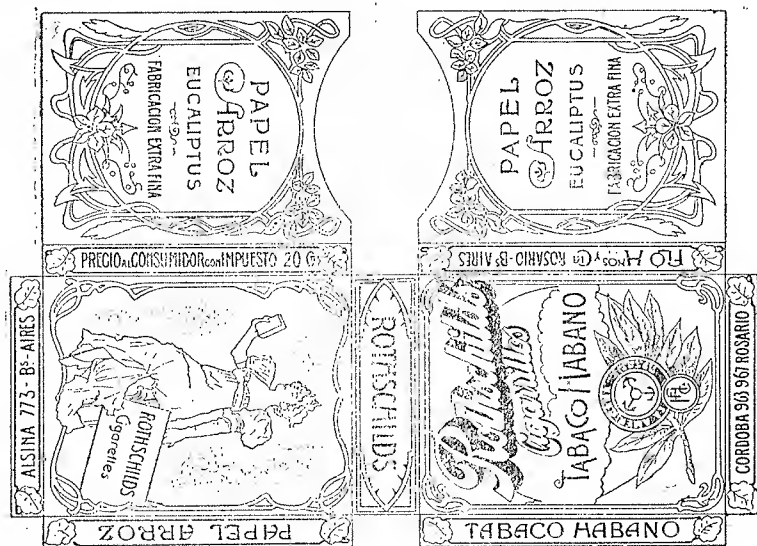 PAPEL
ARROZ
EUCALIPTUS
FABRICACION EXTRA FINA
PAPEL
ARROZ
EUCALIPTUS
FABRICACION EXTRA FINA
PRECIO AL CONSUMIDOR CON IMPUESTO 20
FLO HNOS Y CIA ROSARIO - BS AIRES
ALSINA 773 - BS AIRES
ROTHSCHILDS
Cigarettes
ROTHSCHILDS
Rothschilds
Cigarrillos
TABACO HABANO
CORDOBA 963 967 ROSARIO
PAPEL ARROZ
TABACO HABANO